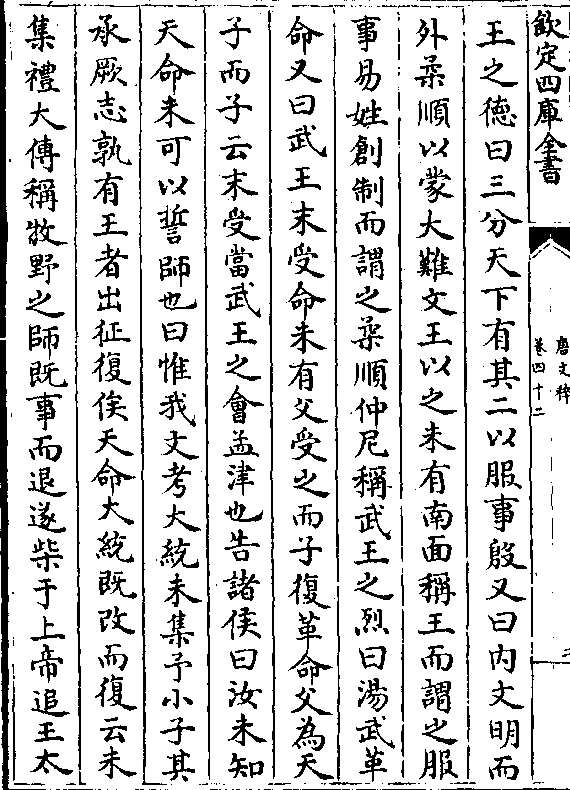 欽定四庫全書
唐文粹
卷四十二
王之德曰三分天下有其二以服事殷又曰内文明而
外柔順以蒙大難文王以之未有南面稱王而謂之服
事易姓創制而謂之柔順仲尼稱武王之烈曰湯武革
命又曰武王末受命未有父受之而子復革命父為天
子而子云末受當武王之會孟津也告諸侯曰汝未知
天命未可以誓師也曰惟我文考大統未集予小子其
承厥志孰有王者出征復俟天命大統既改而復云未
集禮大傳稱牧野之師既事而退遂柴于上帝追王太